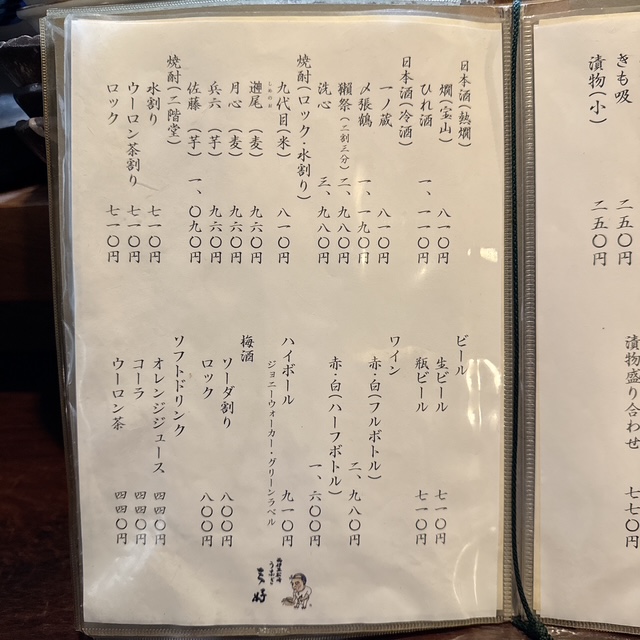 きも吸 二五〇円
漬物(小) 二五〇円
漬物盛り合わせ 七七〇円
日本酒(熱燗)
燗(宝山) 八一〇円
ひれ酒 一、一一〇円
日本酒(冷酒)
一ノ蔵 八一〇円
〆張鶴 一、一九〇円
獺祭(二割三分) 二、九八〇円
洗心 三、九八〇円
焼酎(ロック・水割り)
九代目(米) 八一〇円
しめのお
尾 (麦) 九六〇円
月心 (麦) 九六〇円
兵六 (芋) 九六〇円
佐藤 (芋) 一、〇九〇円
焼酎(二階堂)
水割り 七一〇円
ウーロン茶割り 七一〇円
ロック 七一〇円
ビール
生ビール 七一〇円
瓶ビール 七一〇円
ワイン
赤・白(フルボトル) 二、九八〇円
赤・白(ハーフボトル) 一、六〇〇円
ハイボール 九一〇円
ジョニーウォーカー・グリーンラベル
梅酒
ソーダ割り 八〇〇円
ロック 八〇〇円
ソフトドリンク
オレンジジュース 四四〇円
コーラ 四四〇円
ウーロン茶 四四〇円